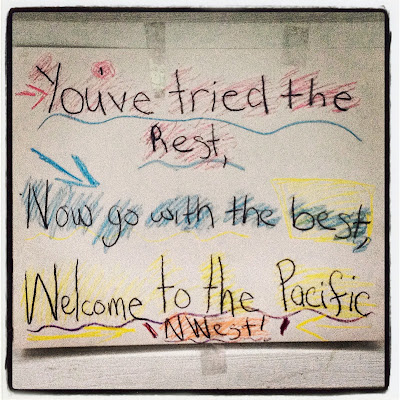 You've tried the
Rest,
Now go with the best,
Welcome to the Pacific
NWest!